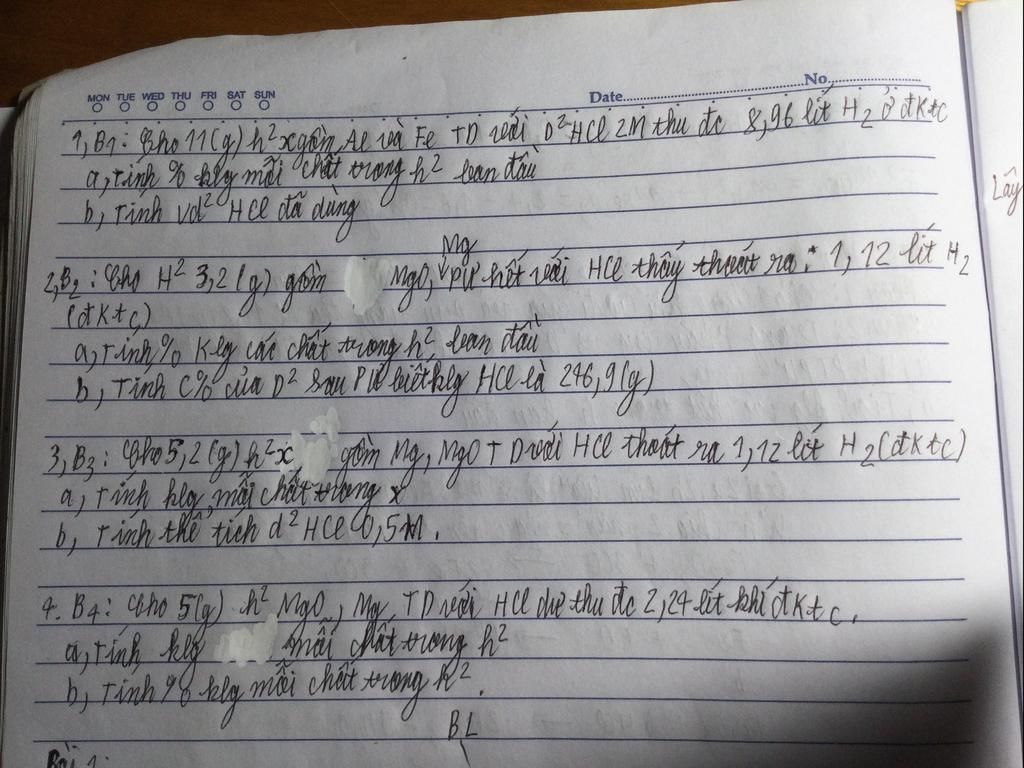 MON TUE WED THU FRI SAT SUN
Date No
1, B1: Cho 11(g) h² x gồm Al và Fe TD với D² HCl 2M thu đc 8,96 lít H2 ở đktc
a, Tính % klg mỗi chất trong h² ban đầu
b, Tính Vd² HCl đã dùng
Mg
2, B2: Cho H² 3,2(g) gồm MgO, PƯ hết với HCl thấy thoát ra: 1,12 lít H2
(đktc)
a, Tính % klg các chất trong h² ban đầu
b, Tính C% của D² sau PƯ biết klg HCl là 246,9(g)
3, B3: Cho 5,2(g) h² x gồm Mg, MgO TD với HCl thoát ra 1,12 lít H2(đktc)
a, Tính klg mỗi chất trong x
b, Tính thể tích d² HCl 0,5M.
4. B4: Cho 5(g) h² MgO, Mg TD với HCl dư thu đc 2,24 lít khí đktc.
a, Tính klg mỗi chất trong h²
b, Tính % klg mỗi chất trong h².
BL
Bài 1:
Lấy